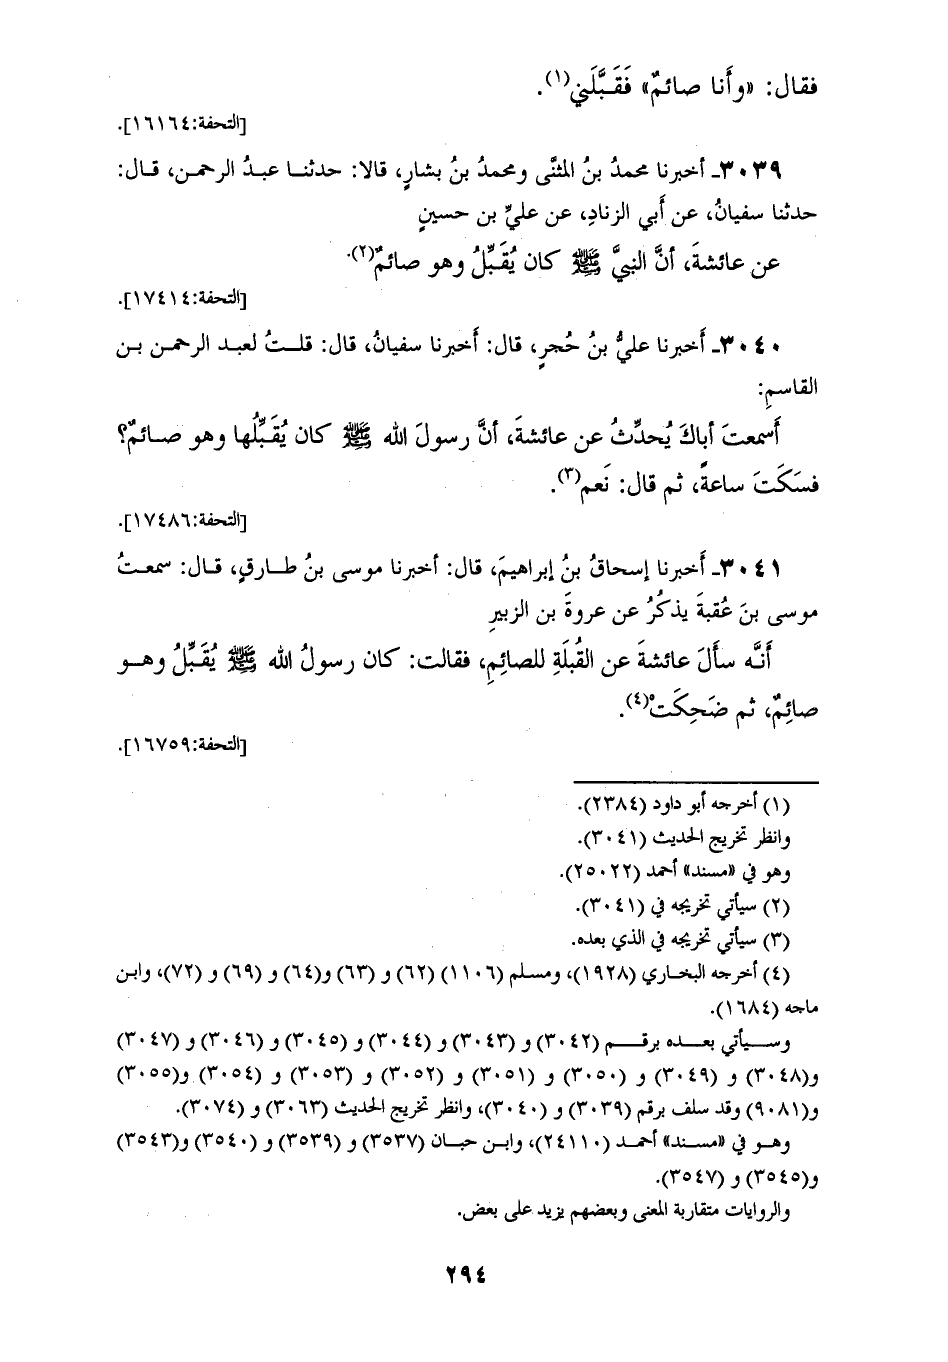 فقال: «وأَنا صائمٌ» فَقَبَّلَني(١).
[التحفة:١٦١٦٤].
٣٠٣٩ـ أخبرنا محمدُ بنُ المثنَّى ومحمدُ بنُ بشارٍ، قالا: حدثنا عبدُ الرحمن، قال:
حدثنا سفيانُ، عن أَبي الزنادِ، عن عليِّ بن حسينٍ
عن عائشةَ، أنَّ النبيَّ ﷺ كان يُقَبِّلُ وهو صائمٌ(٢).
[التحفة:١٧٤١٤].
٣٠٤٠ـ أَخبرنا عليُّ بنُ حُجرٍ، قال: أَخبرنا سفيانُ، قال: قلتُ لعبد الرحمن بن
القاسمِ:
أَسمعتَ أباكَ يُحدِّثُ عن عائشةَ، أنَّ رسولَ الله ﷺ كان يُقَبِّلُها وهو صائمٌ؟
فسَكَتَ ساعةً، ثم قال: نَعم(٣).
[التحفة:١٧٤٨٦].
٣٠٤١ـ أَخبرنا إسحاقُ بنُ إبراهيمَ، قال: أخبرنا موسى بنُ طارقٍ، قال: سمعتُ
موسى بنَ عُقبةَ يذكُرُ عن عروةَ بن الزبيرِ
أنَّه سأَلَ عائشةَ عن القُبلَةِ للصائِمِ، فقالت: كان رسولُ الله ﷺ يُقَبِّلُ وهو
صائِمٌ، ثم ضَحِكَتْ(٤).
[التحفة:١٦٧٥٩].
(١) أخرجه أبو داود (٢٣٨٤).
وانظر تخريج الحديث (٣٠٤١).
وهو في «مسند» أحمد (٢٥٠٢٢).
(٢) سيأتي تخريجه في (٣٠٤١).
(٣) سيأتي تخريجه في الذي بعده.
(٤) أخرجه البخاري (١٩٢٨)، ومسلم (١١٠٦) (٦٢) و (٦٣) و(٦٤) و (٦٩) و (٧٢)، وابن
ماجه (١٦٨٤).
وسيأتي بعده برقم (٣٠٤٢) و (٣٠٤٣) و (٣٠٤٤) و (٣٠٤٥) و (٣٠٤٦) و (٣٠٤٧)
و(٣٠٤٨) و (٣٠٤٩) و (٣٠٥٠) و (٣٠٥١) و (٣٠٥٢) و (٣٠٥٣) و (٣٠٥٤) و(٣٠٥٥)
و(٩٠٨١) وقد سلف برقم (٣٠٣٩) و (٣٠٤٠)، وانظر تخريج الحديث (٣٠٦٣) و (٣٠٧٤).
وهو في «مسند» أحمد (٢٤١١٠)، وابن حبان (٣٥٣٧) و (٣٥٣٩) و (٣٥٤٠) و(٣٥٤٣)
و(٣٥٤٥) و (٣٥٤٧).
والروايات متقاربة المعنى وبعضهم يزيد على بعض.
٢٩٤